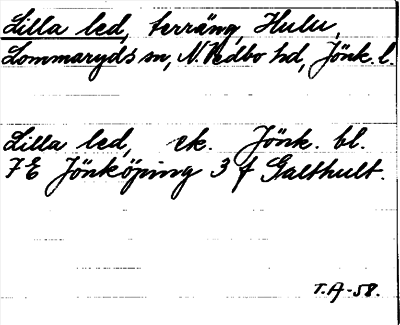 Lilla led, terräng, Hulu,
Lommaryds sn, N. Vedbo hd, Jönk. l.
Lilla led, ek. Jönk. bl.
7E Jönköping 3 f Galthult.
T.A-58.